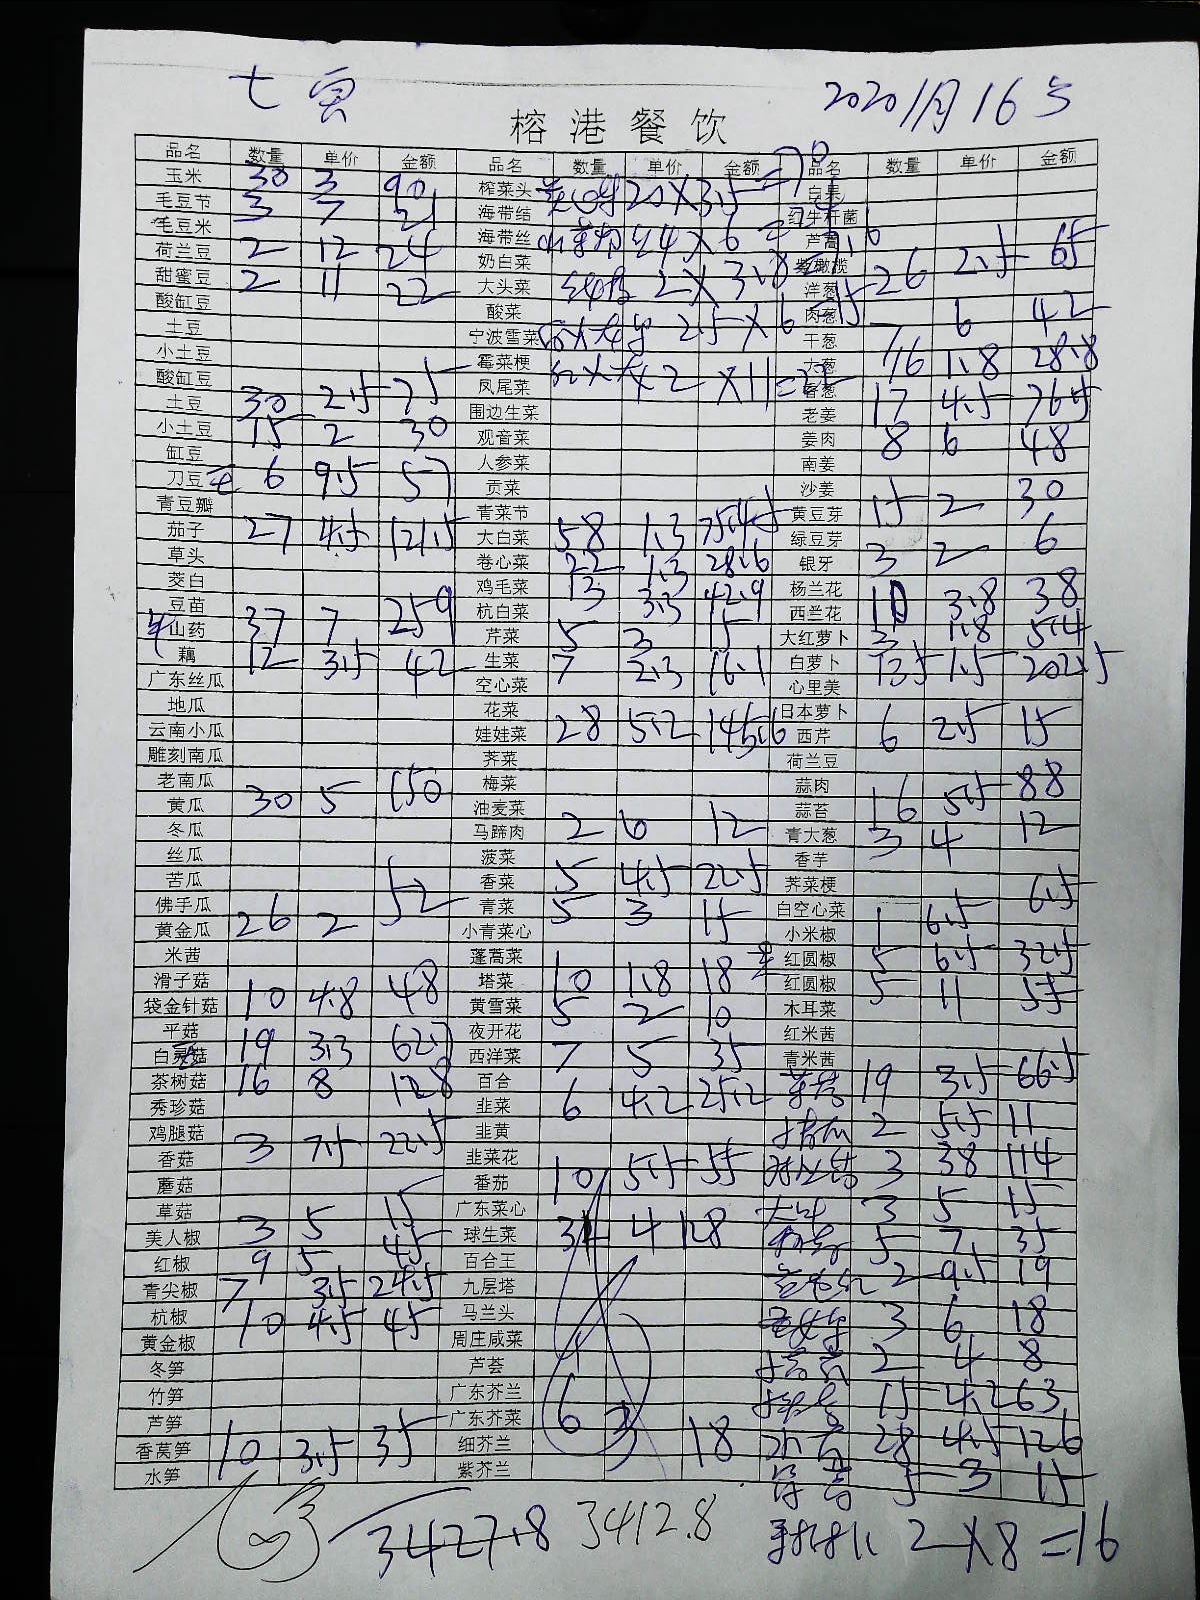 2020 11月16号
榕港餐饮
品名 数量 单价 金额 品名 数量 单价 金额 品名 数量 单价 金额
玉米 30 3 90 榨菜头 20X3.5=70 白果
毛豆节 3 7 21 海带结 红牛杆菌
毛豆米 海带丝 4X6 芦蒿
荷兰豆 2 12 24 奶白菜 紫橄榄 26 2.5 65
甜蜜豆 2 11 22 大头菜 2X3.8 洋葱
酸缸豆 酸菜 2.5X6=15 肉葱 6 42
土豆 宁波雪菜 干葱
小土豆 霉菜梗 2X11=22 大葱 16 1.8 28.8
酸缸豆 凤尾菜 香葱 17 4.5 76.5
土豆 30 2.5 75 围边生菜 老姜
小土豆 15 2 30 观音菜 姜肉 8 6 48
缸豆 人参菜 南姜
刀豆 6 9.5 57 贡菜 沙姜
青豆瓣 青菜节 黄豆芽 15 2 30
茄子 27 4.5 121.5 大白菜 58 1.3 75.4 绿豆芽
草头 卷心菜 22 1.3 28.6 银牙 3 2 6
茭白 鸡毛菜 13 3.3 42.9 杨兰花
豆苗 杭白菜 西兰花 10 3.8 38
山药 37 7 259 芹菜 5 3 15 大红萝卜 3 1.8 5.4
藕 12 3.5 42 生菜 7 2.3 16.1 白萝卜 135 1.5 202.5
广东丝瓜 空心菜 心里美
地瓜 花菜 日本萝卜
云南小瓜 娃娃菜 28 5.2 145.6 西芹 6 2.5 15
雕刻南瓜 荠菜 荷兰豆
老南瓜 梅菜 蒜肉
黄瓜 30 5 150 油麦菜 蒜苔 16 5.5 88
冬瓜 马蹄肉 2 6 12 青大葱 3 4 12
丝瓜 菠菜 香芋
苦瓜 香菜 5 4.5 22.5 荠菜梗
佛手瓜 青菜 5 3 15 白空心菜
黄金瓜 26 2 52 小青菜心 小米椒 1 6.5 6.5
米茜 蓬蒿菜 红圆椒 5 6.5 32.5
滑子菇 塔菜 10 1.8 18 红圆椒 5 11 55
袋金针菇 10 4.8 48 黄雪菜 5 2 10 木耳菜
平菇 夜开花 红米茜
白灵菇 19 3.3 62.7 西洋菜 7 5 35 青米茜
茶树菇 16 8 128 百合 19 3.5 66.5
秀珍菇 韭菜 6 4.2 25.2 2 5.5 11
鸡腿菇 韭黄
香菇 3 7.5 22.5 韭菜花 3 38 114
蘑菇 番茄 10 5.5 55
草菇 广东菜心 3 5 15
美人椒 3 5 15 球生菜 4 128 5 7 35
红椒 9 5 45 百合王 2 9.5 19
青尖椒 7 3.5 24.5 九层塔
杭椒 10 4.5 45 马兰头 3 6 18
黄金椒 周庄咸菜
冬笋 芦荟 2 4 8
竹笋 广东芥兰 15 4.2 63
芦笋 广东芥菜 6 3 18
香莴笋 10 3.5 35 细芥兰 28 4.5 126
水笋 紫芥兰 5 3 15
3427.8 3412.8 2X8=16